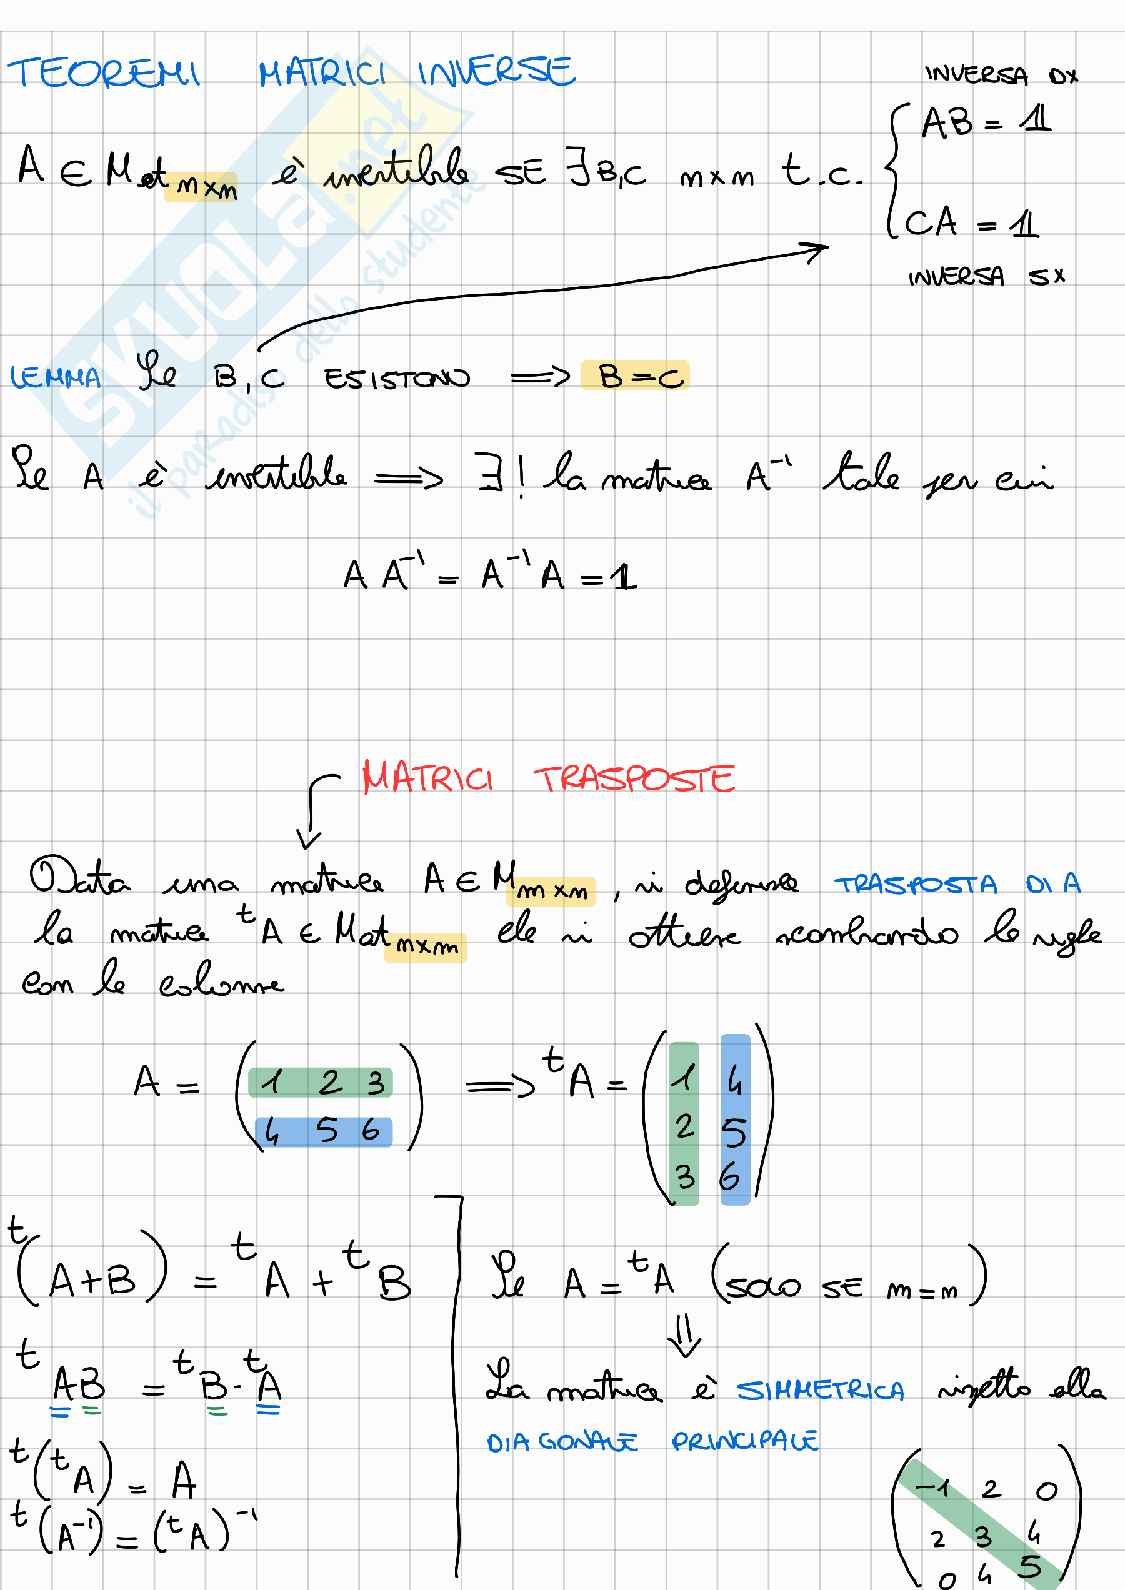 TEOREMI MATRICI INVERSE
INVERSA DX
AB = 1
A ∈ Mat nxn è invertibile SE ∃ B,C nxn t.c.
CA = 1
INVERSA SX
LEMMA Se B,C ESISTONO ⟹ B=C
Se A è invertibile ⟹ ∃! la matrice A⁻¹ tale per cui
A A⁻¹ = A⁻¹ A = 1
MATRICI TRASPOSTE
Data una matrice A ∈ M mxn, si definisce TRASPOSTA DI A
la matrice ᵗA ∈ Mat nxm che si ottiene scambiando le righe
con le colonne
A = (1 2 3 ⟹ ᵗA = (1 4
4 5 6) 2 5
3 6)
ᵗ(A+B) = ᵗA + ᵗB
ᵗAB = ᵗB·ᵗA
ᵗ(ᵗA) = A
ᵗ(A⁻¹) = (ᵗA)⁻¹
Se A = ᵗA (SOLO SE m=n)
⇓
La matrice è SIMMETRICA rispetto alla
DIAGONALE PRINCIPALE
(-1 2 0
2 3 4
0 4 5)
SKUOLA.net
il paradiso dello studente